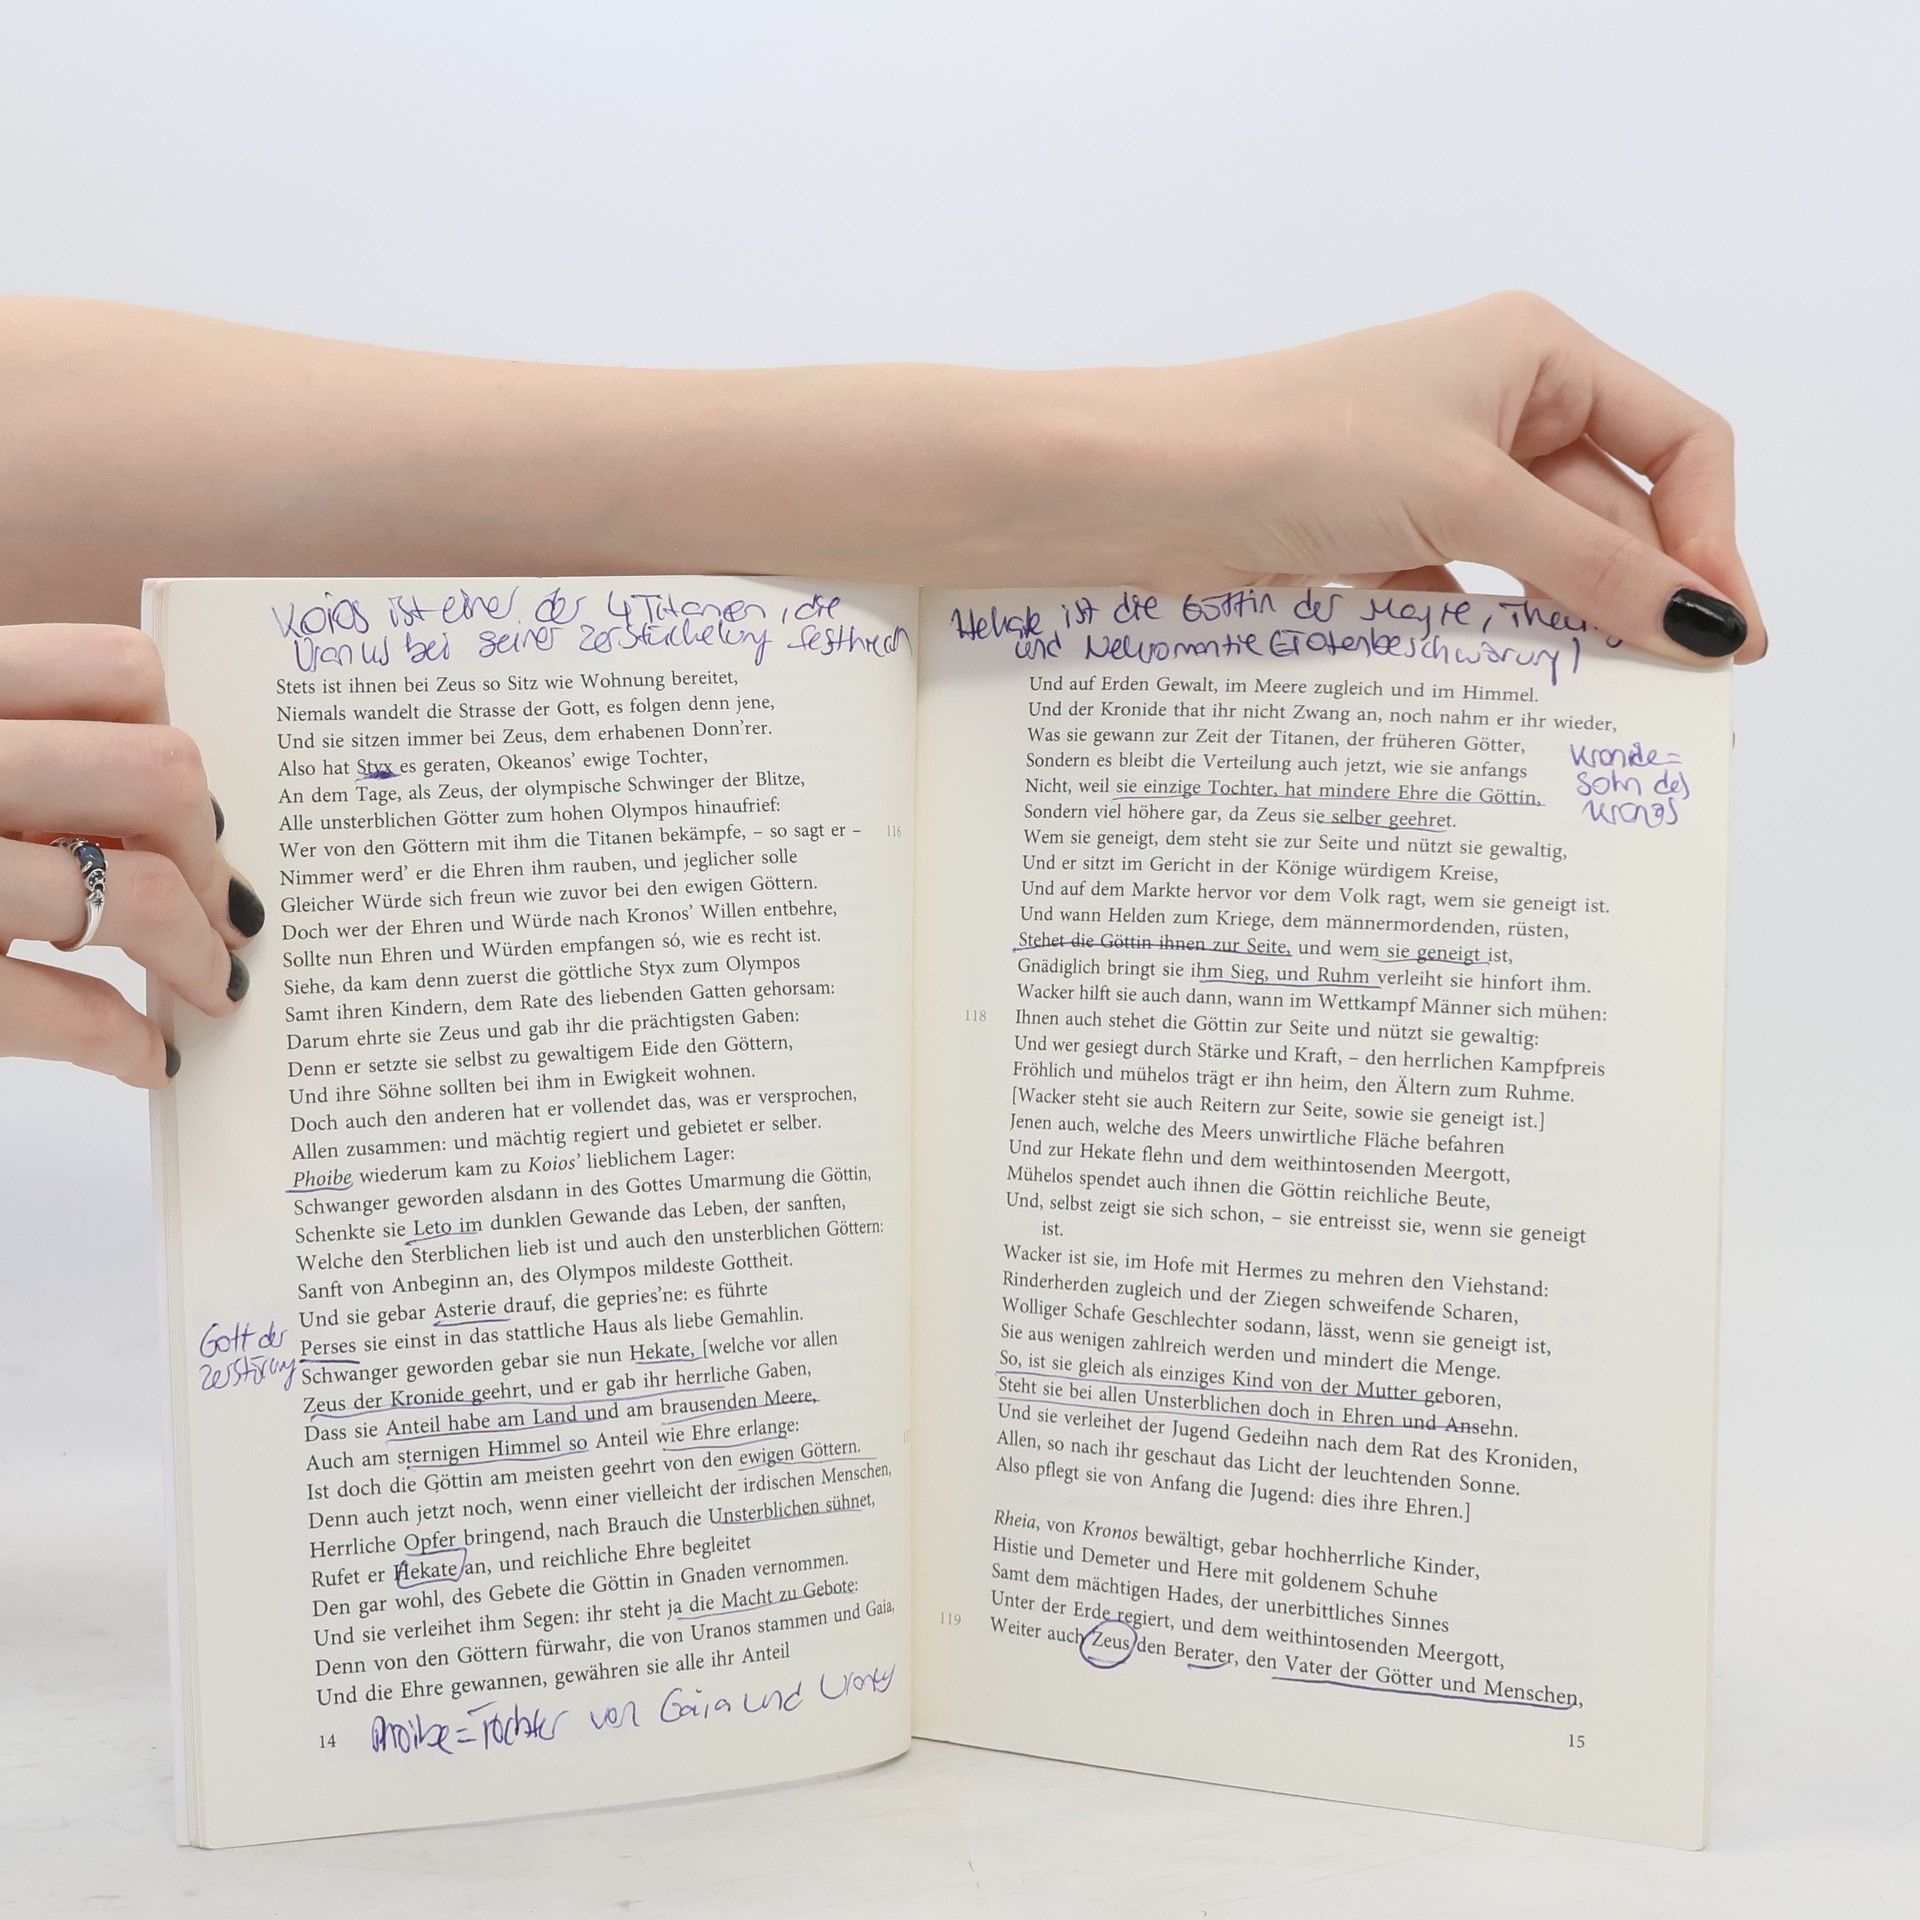 Koios ist einer der 4 Titanen, die
Uranus bei seiner Zerstückelung
Stets ist ihnen bei Zeus so Sitz wie Wohnung bereitet,
Niemals wandelt die Strasse der Gott, es folgen denn jene,
Und sie sitzen immer bei Zeus, dem erhabenen Donn'rer.
Also hat Styx es geraten, Okeanos' ewige Tochter,
An dem Tage, als Zeus, der olympische Schwinger der Blitze,
Alle unsterblichen Götter zum hohen Olympos hinaufrief:
Wer von den Göttern mit ihm die Titanen bekämpfe, – so sagt er – 116
Nimmer werd' er die Ehren ihm rauben, und jeglicher solle
Gleicher Würde sich freun wie zuvor bei den ewigen Göttern.
Doch wer der Ehren und Würde nach Kronos' Willen entbehre,
Sollte nun Ehren und Würden empfangen só, wie es recht ist.
Siehe, da kam denn zuerst die göttliche Styx zum Olympos
Samt ihren Kindern, dem Rate des liebenden Gatten gehorsam:
Darum ehrte sie Zeus und gab ihr die prächtigsten Gaben:
Denn er setzte sie selbst zu gewaltigem Eide den Göttern,
Und ihre Söhne sollten bei ihm in Ewigkeit wohnen.
Doch auch den anderen hat er vollendet das, was er versprochen,
Allen zusammen: und mächtig regiert und gebietet er selber.
Phoibe wiederum kam zu Koios' lieblichem Lager:
Schwanger geworden alsdann in des Gottes Umarmung die Göttin,
Schenkte sie Leto im dunklen Gewande das Leben, der sanften,
Welche den Sterblichen lieb ist und auch den unsterblichen Göttern:
Sanft von Anbeginn an, des Olympos mildeste Gottheit.
Und sie gebar Asterie drauf, die gepries'ne: es führte
Gott der
Zerstörung
Perses sie einst in das stattliche Haus als liebe Gemahlin.
Schwanger geworden gebar sie nun Hekate, [welche vor allen
Zeus der Kronide geehrt, und er gab ihr herrliche Gaben,
Dass sie Anteil habe am Land und am brausenden Meere,
Auch am sternigen Himmel so Anteil wie Ehre erlange:
Ist doch die Göttin am meisten geehrt von den ewigen Göttern.
Denn auch jetzt noch, wenn einer vielleicht der irdischen Menschen,
Herrliche Opfer bringend, nach Brauch die Unsterblichen sühnet,
Rufet er Hekate an, und reichliche Ehre begleitet
Den gar wohl, des Gebete die Göttin in Gnaden vernommen.
Und sie verleihet ihm Segen: ihr steht ja die Macht zu Gebote:
Denn von den Göttern fürwahr, die von Uranos stammen und Gaia,
Und die Ehre gewannen, gewähren sie alle ihr Anteil
14
Phoibe = Tochter von Gaia und Uranus
Hekate ist die Göttin der Magie,
und Nekromantie (Totenbeschwörung)
Und auf Erden Gewalt, im Meere zugleich und im Himmel.
Und der Kronide that ihr nicht Zwang an, noch nahm er ihr wieder,
Was sie gewann zur Zeit der Titanen, der früheren Götter,
Sondern es bleibt die Verteilung auch jetzt, wie sie anfangs
Kronide =
Sohn des
Kronos
Nicht, weil sie einzige Tochter, hat mindere Ehre die Göttin,
Sondern viel höhere gar, da Zeus sie selber geehret.
Wem sie geneigt, dem steht sie zur Seite und nützt sie gewaltig,
Und er sitzt im Gericht in der Könige würdigem Kreise,
Und auf dem Markte hervor vor dem Volk ragt, wem sie geneigt ist.
Und wann Helden zum Kriege, dem männermordenden, rüsten,
Stehet die Göttin ihnen zur Seite, und wem sie geneigt ist,
Gnädiglich bringt sie ihm Sieg, und Ruhm verleiht sie hinfort ihm.
Wacker hilft sie auch dann, wann im Wettkampf Männer sich mühen:
118 Ihnen auch stehet die Göttin zur Seite und nützt sie gewaltig:
Und wer gesiegt durch Stärke und Kraft, – den herrlichen Kampfpreis
Fröhlich und mühelos trägt er ihn heim, den Ältern zum Ruhme.
[Wacker steht sie auch Reitern zur Seite, sowie sie geneigt ist.]
Jenen auch, welche des Meers unwirtliche Fläche befahren
Und zur Hekate flehn und dem weithintosenden Meergott,
Mühelos spendet auch ihnen die Göttin reichliche Beute,
Und, selbst zeigt sie sich schon, – sie entreisst sie, wenn sie geneigt
ist.
Wacker ist sie, im Hofe mit Hermes zu mehren den Viehstand:
Rinderherden zugleich und der Ziegen schweifende Scharen,
Wolliger Schafe Geschlechter sodann, lässt, wenn sie geneigt ist,
Sie aus wenigen zahlreich werden und mindert die Menge.
So, ist sie gleich als einziges Kind von der Mutter geboren,
Steht sie bei allen Unsterblichen doch in Ehren und Ansehn.
Und sie verleihet der Jugend Gedeihn nach dem Rat des Kroniden,
Allen, so nach ihr geschaut das Licht der leuchtenden Sonne.
Also pflegt sie von Anfang die Jugend: dies ihre Ehren.]
Rheia, von Kronos bewältigt, gebar hochherrliche Kinder,
Histie und Demeter und Here mit goldenem Schuhe
Samt dem mächtigen Hades, der unerbittliches Sinnes
Unter der Erde regiert, und dem weithintosenden Meergott,
119 Weiter auch Zeus den Berater, den Vater der Götter und Menschen,
15